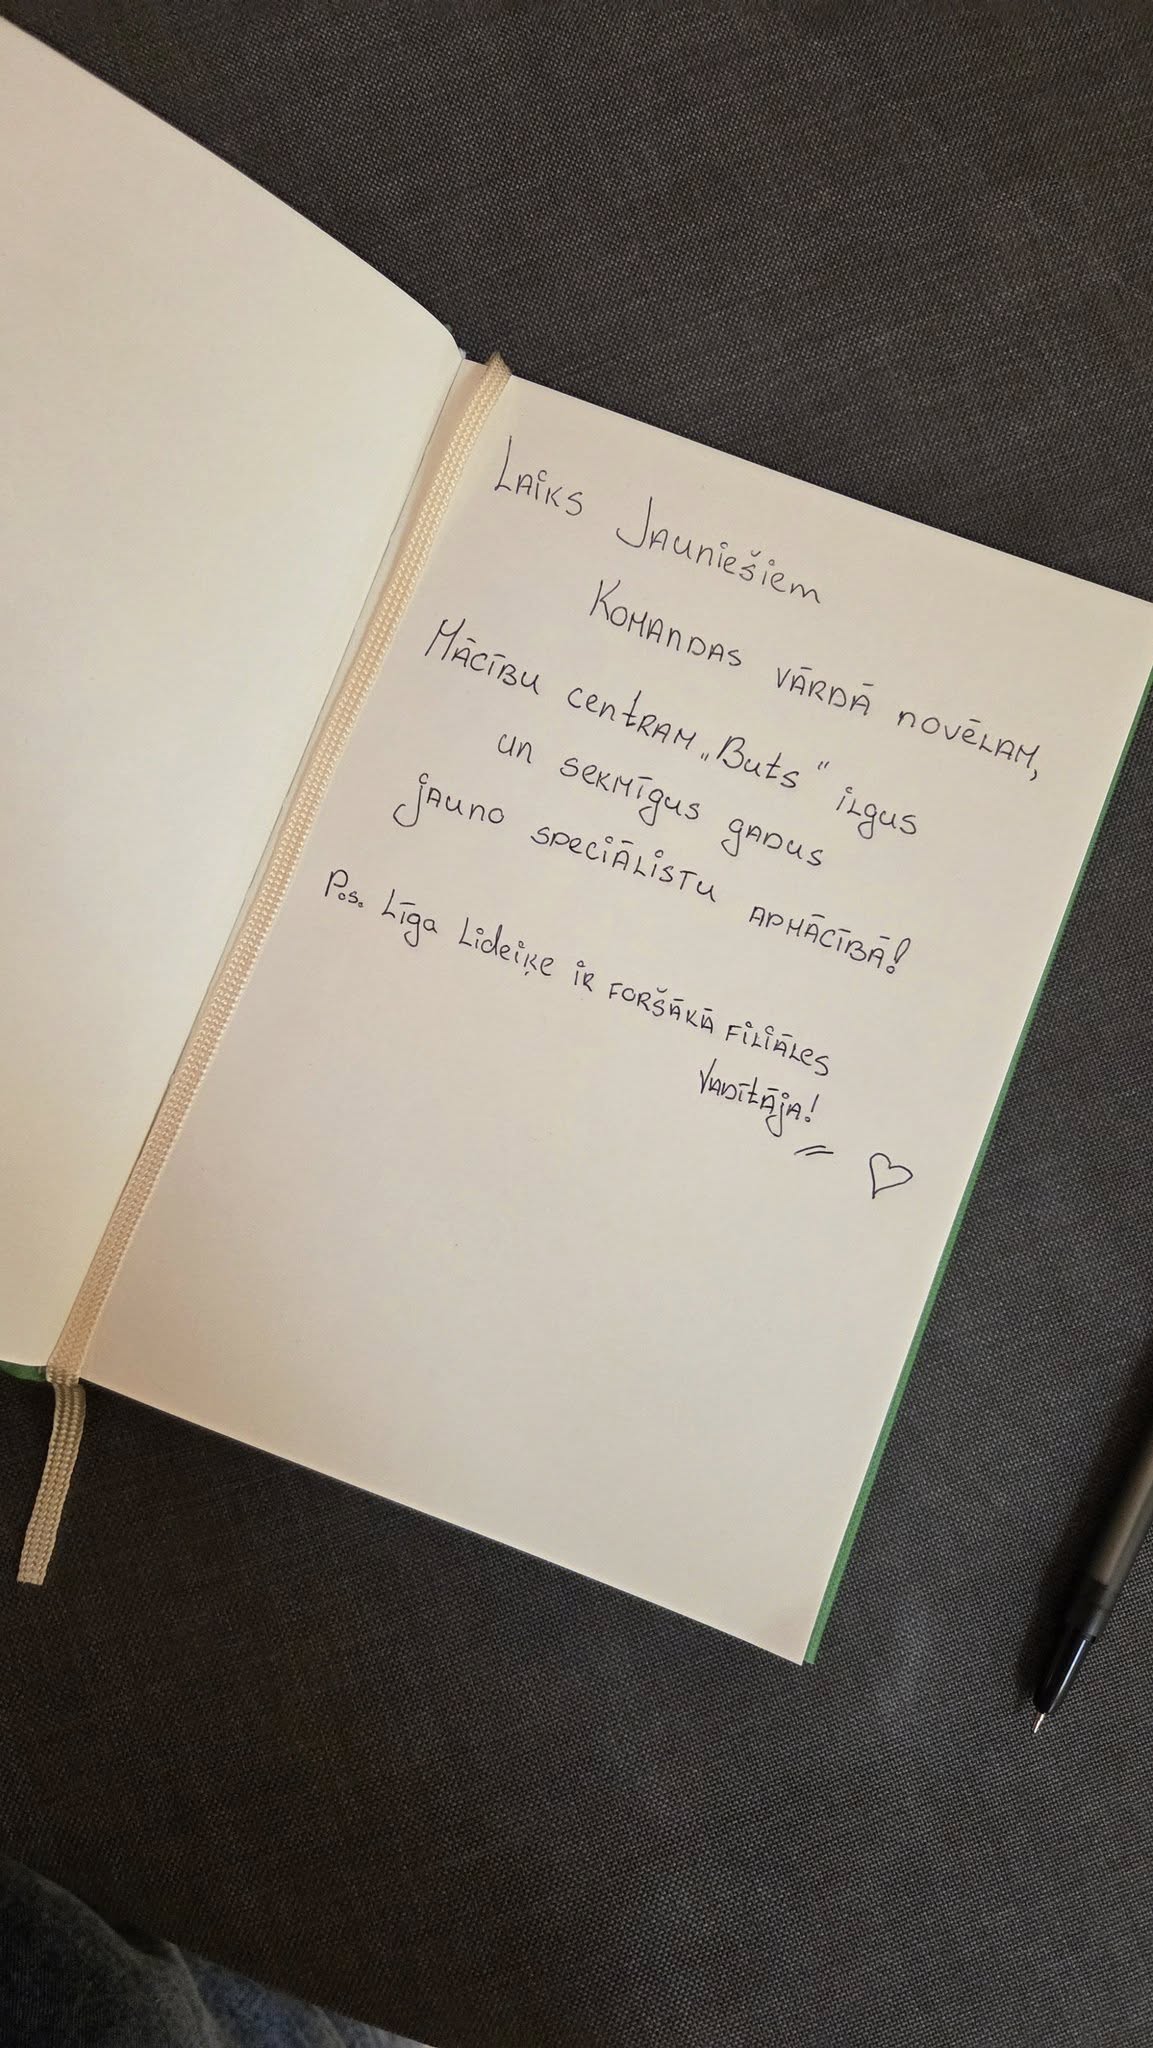 Laiks Jauniešiem
Komandas vārdā novēlam,
Mācību centram „Buts“ ilgus
un sekmīgus gadus
jauno speciālistu apmācībā!
P.s. Līga Lideiķe ir foršākā filiāles
Vadītāja!